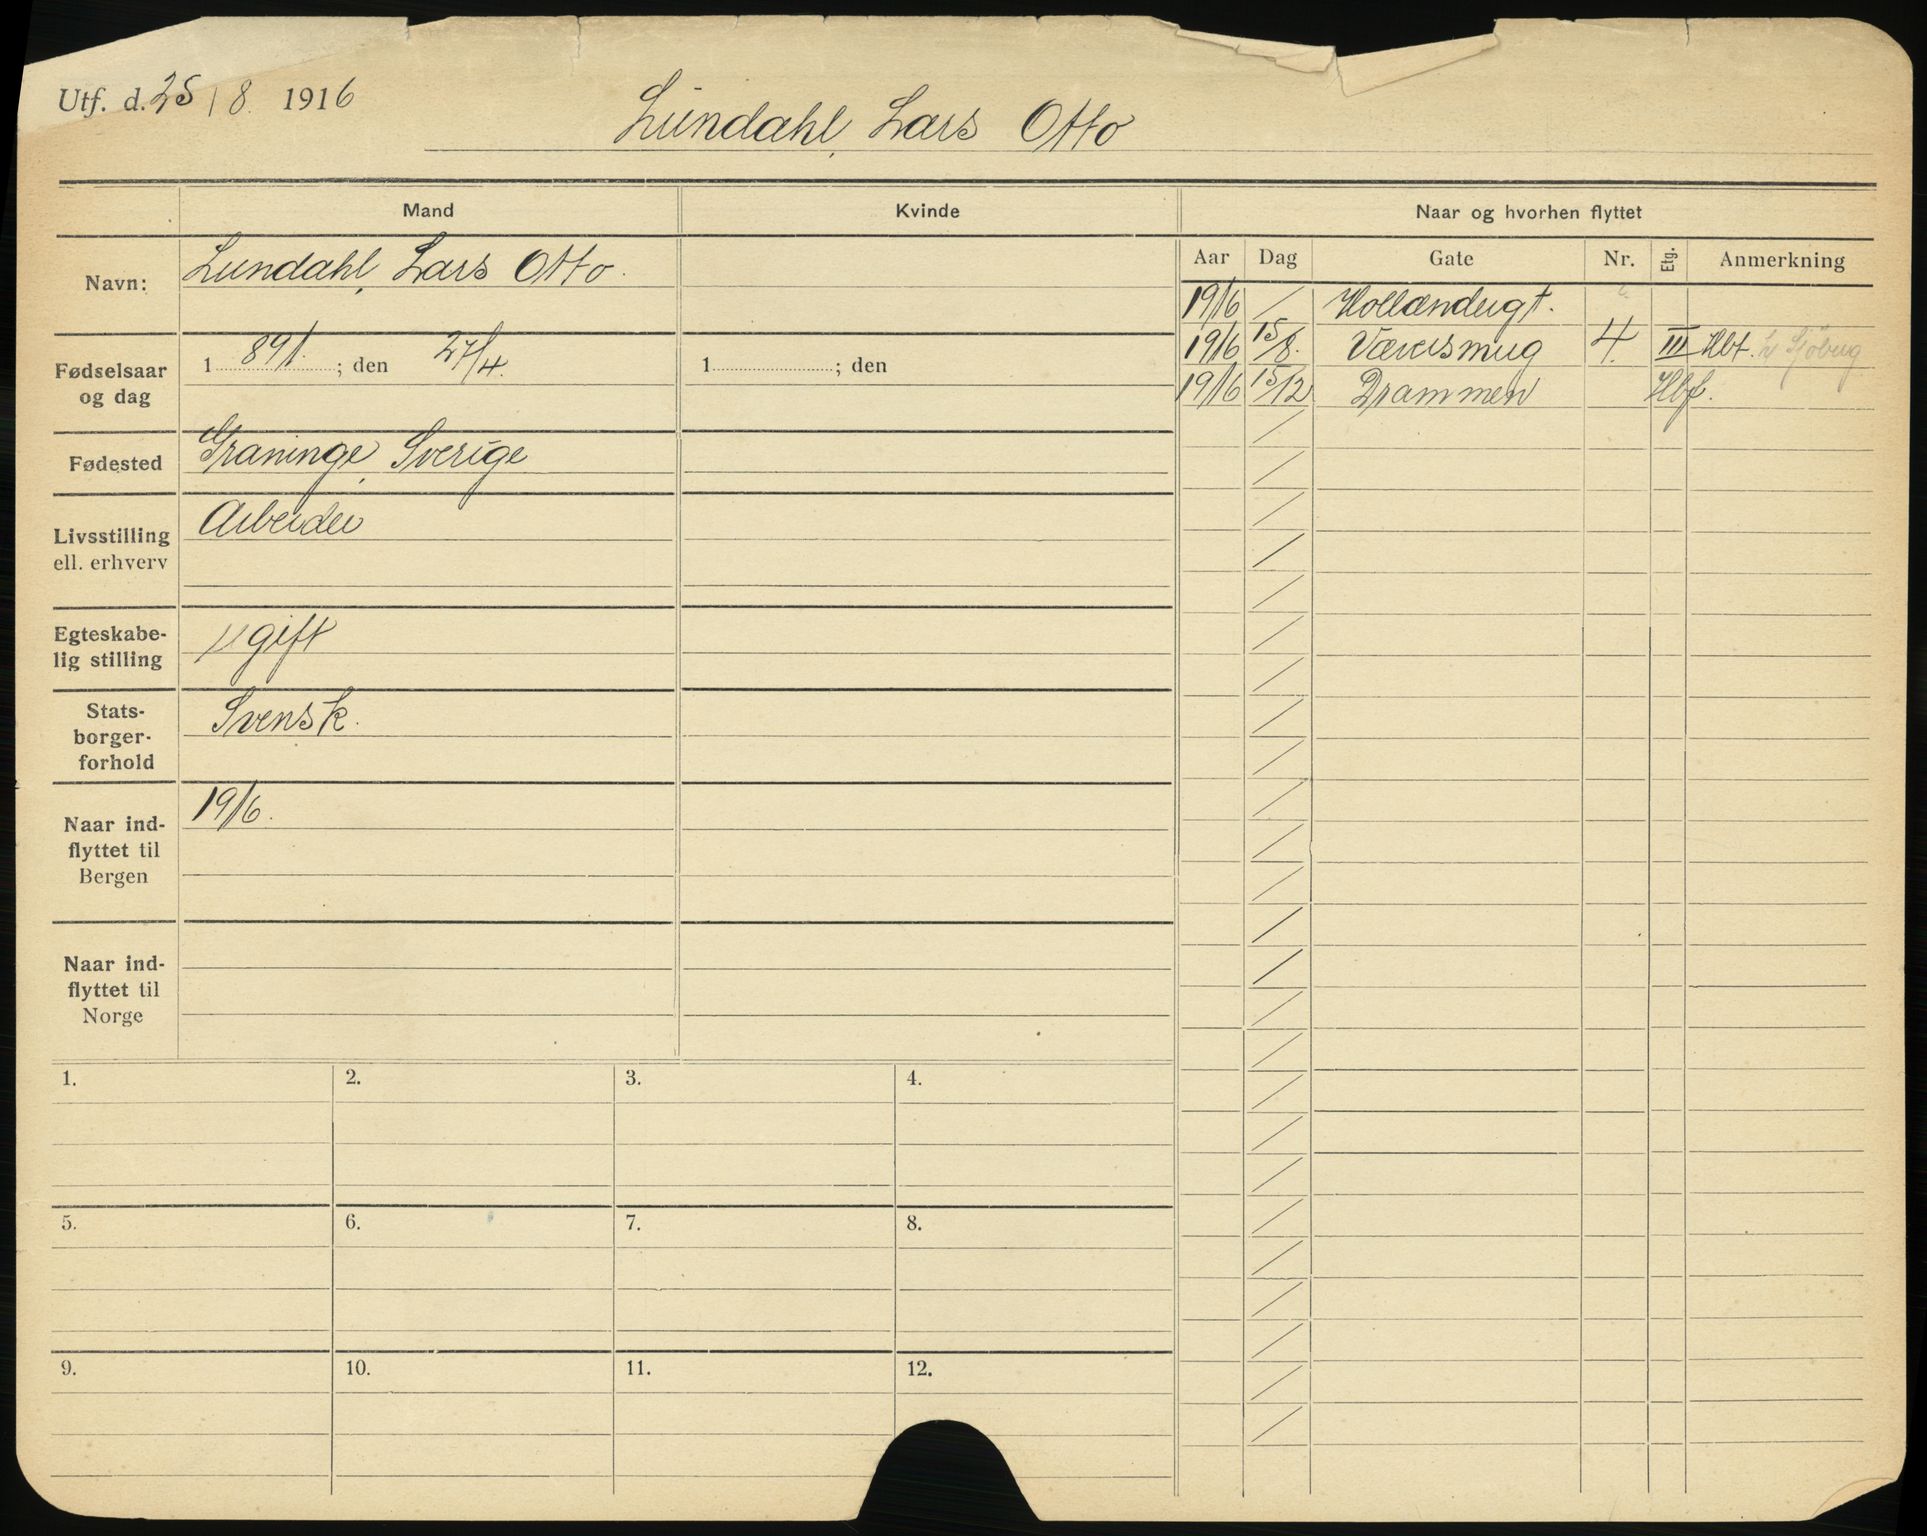 Utf. d. 25/8. 1916
Lundahl, Lars Otto
Mand Kvinde Naar og hvorhen flyttet
Navn: Lundahl, Lars Otto.
Aar Dag Gate Nr. Etg. Anmerkning
1916 / Hollændergt.
1916 15/8. Væversmug 4. III Hbf. h/ Sjöberg
1916 15/12 Drammen Hbf.
Fødselsaar og dag 1 891. ; den 27/4. 1 ; den
Fødested Graninge, Sverige
Livsstilling ell. erhverv Arbeider
Egteskabe-
lig stilling ugift
Stats-
borger-
forhold Svensk.
Naar ind-
flyttet til
Bergen 1916.
Naar ind-
flyttet til
Norge
1. 2. 3. 4.
5. 6. 7. 8.
9. 10. 11. 12.